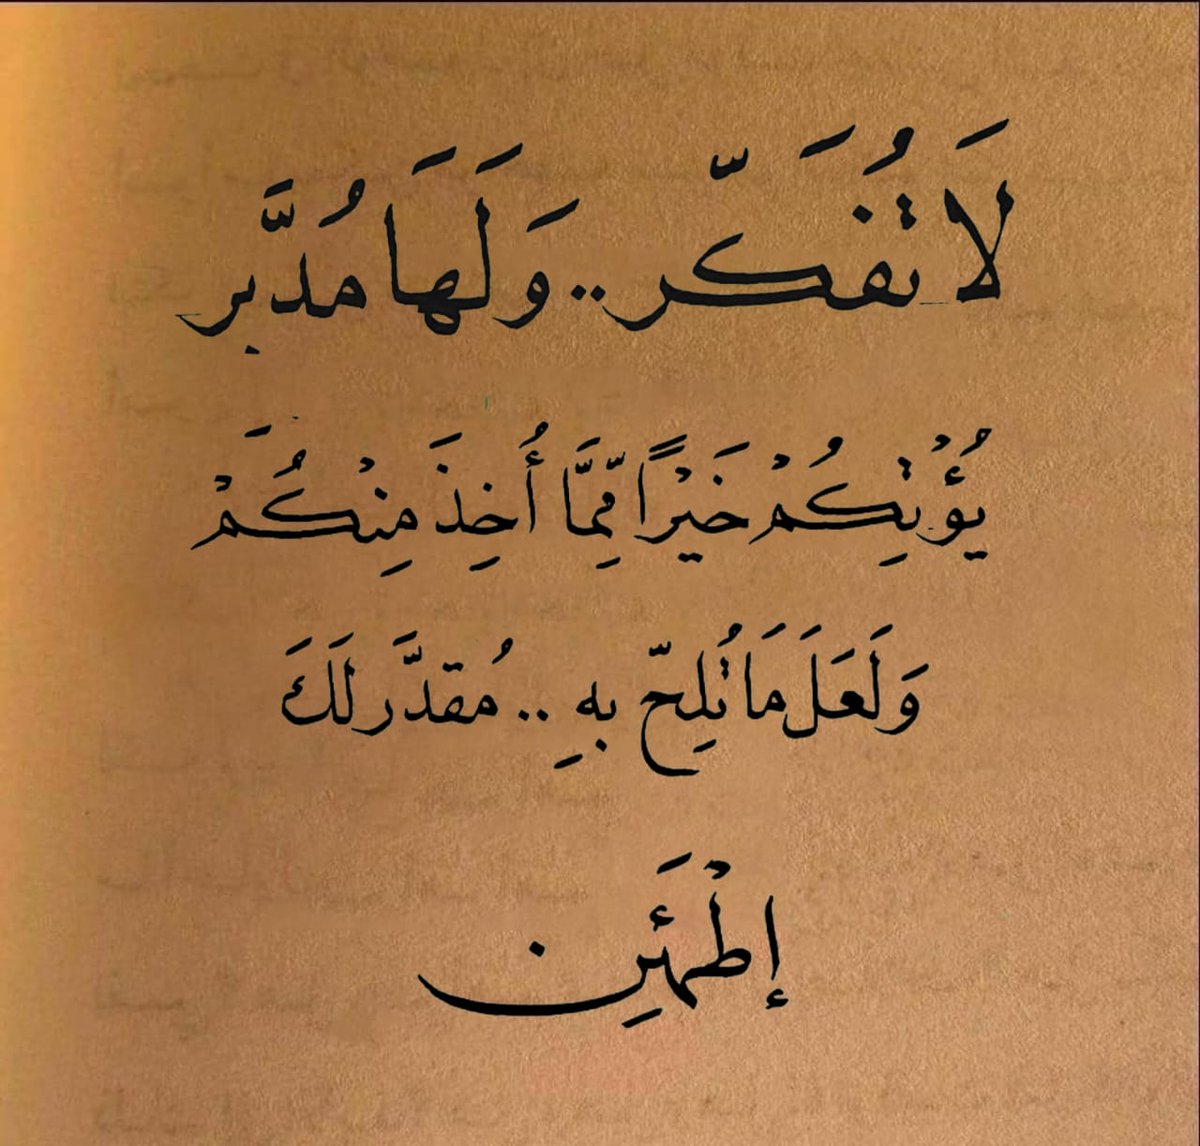 لَا تُفَكّر .. وَلَهَا مُدبَّر
يُؤْتِكُمْ خَيْرًا مِّمَّا أُخِذَ مِنْكُمْ
وَلَعَلَ مَا تُلِحّ بهِ .. مُقدَّر لَكَ
إطْمَئِن